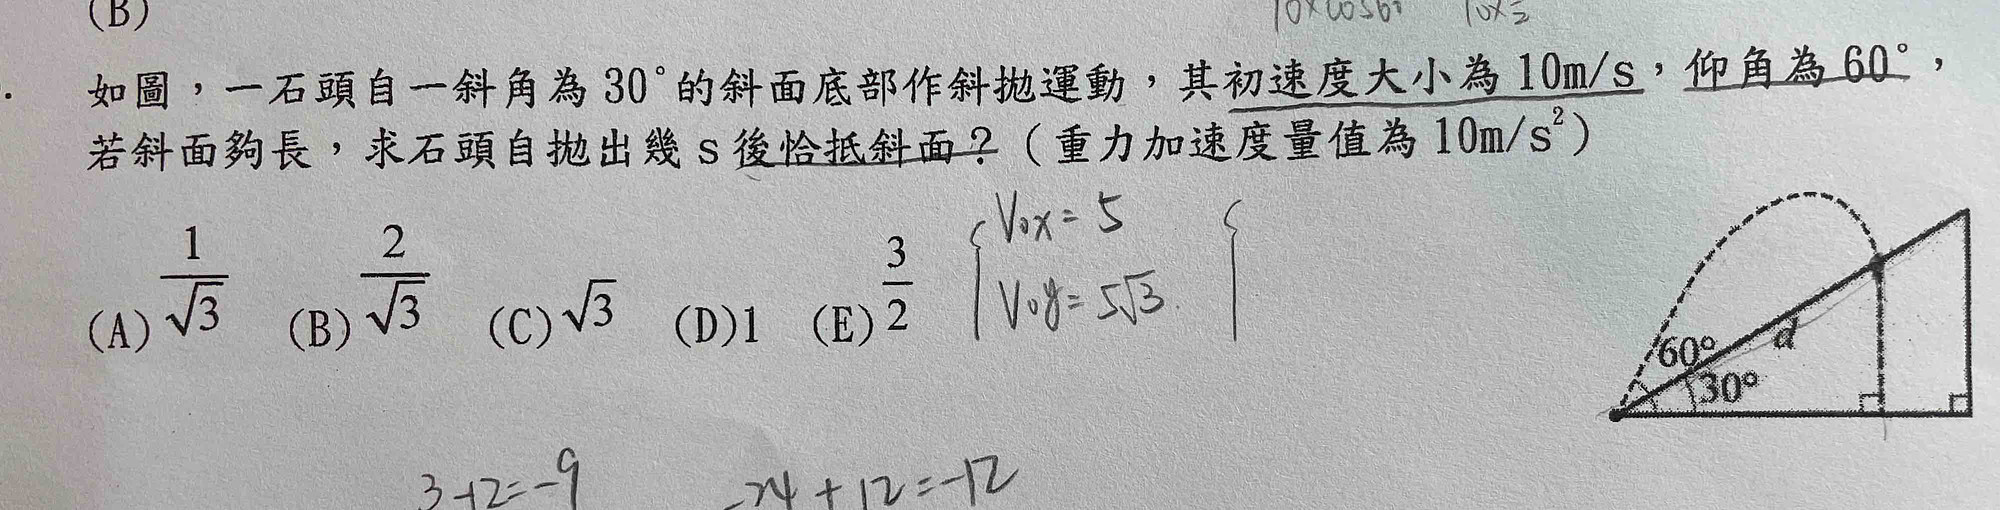 (B)
10×cos60° 10×½
如圖，一石頭自一斜角為 30°的斜面底部作斜拋運動，其初速度大小為 10m/s，仰角為 60°，
若斜面夠長，求石頭自拋出幾 s 後恰抵斜面？（重力加速度量值為 10m/s²）
(A) 1/√3 (B) 2/√3 (C) √3 (D)1 (E) 3/2
V₀x = 5
V₀y = 5√3
60°
30°
d
3-12=-9 -24+12=-12